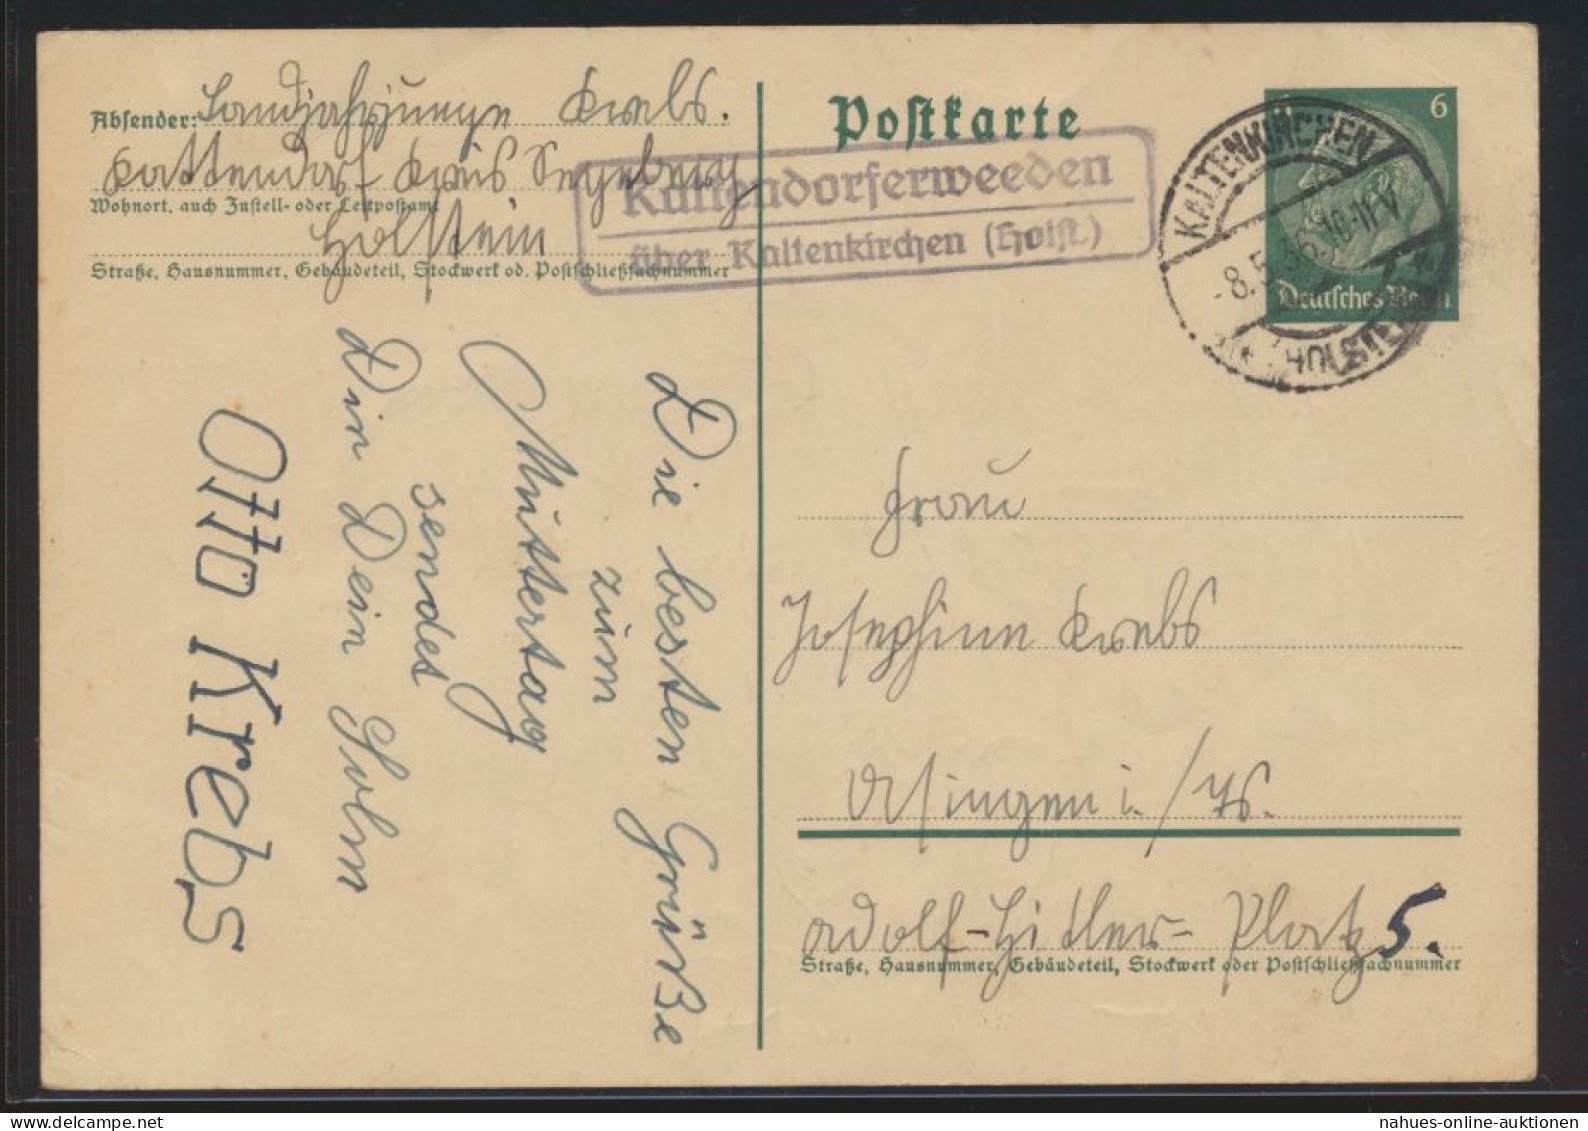 Absender: Landjahrjunge Krebs.
Kattendorf Kreis Segeberg
Wohnort, auch Zustell- oder Leitpostamt
Holstein
Straße, Hausnummer, Gebäudeteil, Stockwerk od. Postschließfachnummer
Die besten Grüße
zum
Muttertag
sendet
Dir Dein Sohn
Otto Krebs
Postkarte
Kattendorferweeden
über Kaltenkirchen (Holst.)
KALTENKIRCHEN
-8.5.36.10-11V
HOLSTEIN
6
Deutsches Reich
Frau
Josephine Krebs
Usingen i./Ts.
Adolf-Hitler-Platz 5.
Straße, Hausnummer, Gebäudeteil, Stockwerk oder Postschließfachnummer
nahues-online-auktionen